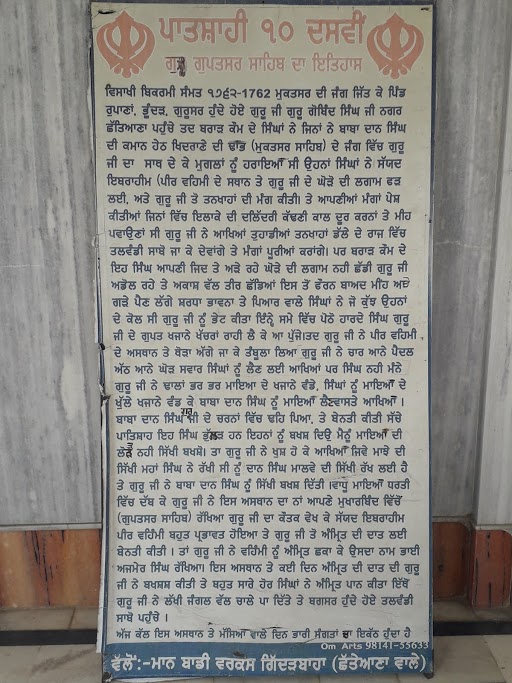 ਪਾਤਸ਼ਾਹੀ ੧੦ ਦਸਵੀਂ
ਗੁਰੂ ਗੁਪਤਸਰ ਸਾਹਿਬ ਦਾ ਇਤਿਹਾਸ
ਵਿਸਾਖੀ ਬਿਕਰਮੀ ਸੰਮਤ ੧੭੬੨-1762 ਮੁਕਤਸਰ ਦੀ ਜੰਗ ਜਿੱਤ ਕੇ ਪਿੰਡ
ਰੁਪਾਣਾਂ, ਭੂੰਦੜ, ਗੁਰੂਸਰ ਹੁੰਦੇ ਹੋਏ ਗੁਰੂ ਜੀ ਗੁਰੂ ਗੋਬਿੰਦ ਸਿੰਘ ਜੀ ਨਗਰ
ਛੱਤਿਆਣਾ ਪਹੁੰਚੇ ਤਦ ਬਰਾੜ ਕੌਮ ਦੇ ਸਿੰਘਾਂ ਨੇ ਜਿਨਾਂ ਨੇ ਬਾਬਾ ਦਾਨ ਸਿੰਘ
ਦੀ ਕਮਾਨ ਹੇਠ ਖਿਦਰਾਣੇ ਦੀ ਢਾਬ (ਮੁਕਤਸਰ ਸਾਹਿਬ) ਦੇ ਜੰਗ ਵਿੱਚ ਗੁਰੂ
ਜੀ ਦਾ ਸਾਥ ਦੇ ਕੇ ਮੁਗਲਾਂ ਨੂੰ ਹਰਾਇਆਂ ਸੀ ਉਹਨਾਂ ਸਿੰਘਾਂ ਨੇ ਸੱਯਦ
ਇਬਰਾਹੀਮ (ਪੀਰ ਵਹਿਮੀ ਦੇ ਸਥਾਨ ਤੇ ਗੁਰੂ ਜੀ ਦੇ ਘੋੜੇ ਦੀ ਲਗਾਮ ਫੜ
ਲਈ, ਅਤੇ ਗੁਰੂ ਜੀ ਤੋ ਤਨਖਾਹਾਂ ਦੀ ਮੰਗ ਕੀਤੀ। ਤੇ ਆਪਣੀਆਂ ਮੰਗਾਂ ਪੇਸ਼
ਕੀਤੀਆਂ ਜਿਨਾਂ ਵਿੱਚ ਇਲਾਕੇ ਦੀ ਦਲਿੱਦਰੀ ਕੱਢਣੀ ਕਾਲ ਦੂਰ ਕਰਨਾਂ ਤੇ ਮੀਹ
ਪਵਾਉਣਾਂ ਸੀ ਗੁਰੂ ਜੀ ਨੇ ਆਖਿਆਂ ਤੁਹਾਡੀਆਂ ਤਨਖਾਹਾਂ ਡੱਲੇ ਦੇ ਰਾਜ ਵਿੱਚ
ਤਲਵੰਡੀ ਸਾਬੋ ਜਾ ਕੇ ਦੇਵਾਂਗੇ ਤੇ ਮੰਗਾਂ ਪੂਰੀਆਂ ਕਰਾਂਗੇ। ਪਰ ਬਰਾੜ ਕੌਮ ਦੇ
ਇਹ ਸਿੰਘ ਆਪਣੀ ਜਿਦ ਤੇ ਅੜੇ ਰਹੇ ਘੋੜੇ ਦੀ ਲਗਾਮ ਨਹੀ ਛੱਡੀ ਗੁਰੂ ਜੀ
ਅਡੋਲ ਰਹੇ ਤੇ ਅਕਾਸ਼ ਵੱਲ ਤੀਰ ਛੱਡਿਆਂ ਇਸ ਤੋਂ ਫੌਰਨ ਬਾਅਦ ਮੀਹ ਅਤੇ
ਗੜੇ ਪੈਣ ਲੱਗੇ ਸ਼ਰਧਾ ਭਾਵਨਾ ਤੇ ਪਿਆਰ ਵਾਲੇ ਸਿੰਘਾਂ ਨੇ ਜੋ ਕੁੱਝ ਉਹਨਾਂ
ਦੇ ਕੋਲ ਸੀ ਗੁਰੂ ਜੀ ਨੂੰ ਭੇਟ ਕੀਤਾ ਇੰਨ੍ਹੇ ਸਮੇ ਵਿੱਚ ਪੋਠੋ ਹਾਰਦੇ ਸਿੰਘ ਗੁਰੂ
ਜੀ ਦੇ ਗੁਪਤ ਖਜਾਨੇ ਖੱਚਰਾਂ ਰਾਹੀ ਲੈ ਕੇ ਆ ਪੁੱਜੇ।ਤਦ ਗੁਰੂ ਜੀ ਨੇ ਪੀਰ ਵਹਿਮੀ
ਦੇ ਅਸਥਾਨ ਤੇ ਥੋੜਾ ਅੱਗੇ ਜਾ ਕੇ ਤੰਬੂਲਾ ਲਿਆ ਗੁਰੂ ਜੀ ਨੇ ਚਾਰ ਆਨੇ ਪੈਦਲ
ਅੱਠ ਆਨੇ ਘੋੜ ਸਵਾਰ ਸਿੰਘਾਂ ਨੂੰ ਲੈਣ ਲਈ ਆਖਿਆਂ ਪਰ ਸਿੰਘ ਨਹੀ ਮੰਨੇ
ਗੁਰੂ ਜੀ ਨੇ ਢਾਲਾਂ ਭਰ ਭਰ ਮਾਇਆ ਦੇ ਖਜਾਨੇ ਵੰਡੇ, ਸਿੰਘਾਂ ਨੂੰ ਮਾਇਆਂ ਦੇ
ਖੁੱਲੇ ਖਜਾਨੇ ਵੰਡ ਕੇ ਬਾਬਾ ਦਾਨ ਸਿੰਘ ਨੂੰ ਮਾਇਆਂ ਲੈਣਵਾਸਤੇ ਆਖਿਆਂ।
ਬਾਬਾ ਦਾਨ ਸਿੰਘ ਜੀ ਦੇ ਚਰਨਾਂ ਵਿੱਚ ਢਹਿ ਪਿਆ, ਤੇ ਬੇਨਤੀ ਕੀਤੀ ਸੱਚੇ
ਪਾਤਿਸ਼ਾਹ ਇਹ ਸਿੰਘ ਭੁੱਲੜ ਹਨ ਇਹਨਾਂ ਨੂੰ ਬਖਸ਼ ਦਿਉ ਮੈਨੂੰ ਮਾਇਆਂ ਦੀ
ਲੋੜ ਨਹੀ ਸਿੱਖੀ ਬਖਸ਼ੋ। ਤਾ ਗੁਰੂ ਜੀ ਨੇ ਖੁਸ਼ ਹੋ ਕੇ ਆਖਿਆਂ ਜਿਵੇ ਮਾਝੇ ਦੀ
ਸਿੱਖੀ ਮਹਾਂ ਸਿੰਘ ਨੇ ਰੱਖੀ ਸੀ ਤੂੰ ਦਾਨ ਸਿੰਘ ਮਾਲਵੇ ਦੀ ਸਿੱਖੀ ਰੱਖ ਲਈ ਹੈ
ਤੇ ਗੁਰੂ ਜੀ ਨੇ ਬਾਬਾ ਦਾਨ ਸਿੰਘ ਨੂੰ ਸਿੱਖੀ ਬਖਸ਼ ਦਿੱਤੀ।ਵਾਧੂ ਮਾਇਆਂ ਧਰਤੀ
ਵਿੱਚ ਦੱਬ ਕੇ ਗੁਰੂ ਜੀ ਨੇ ਇਸ ਅਸਥਾਨ ਦਾ ਨਾਂ ਆਪਣੇ ਮੁਖਾਰਬਿੰਦ ਵਿੱਚੋਂ
(ਗੁਪਤਸਰ ਸਾਹਿਬ) ਰੱਖਿਆ ਗੁਰੂ ਜੀ ਦਾ ਕੌਤਕ ਵੇਖ ਕੇ ਸੱਯਦ ਇਬਰਾਹਿਮ
ਪੀਰ ਵਹਿਮੀ ਬਹੁਤ ਪ੍ਰਭਾਵਤ ਹੋਇਆ ਤੇ ਗੁਰੂ ਜੀ ਤੋਂ ਅੰਮ੍ਰਿਤ ਦੀ ਦਾਤ ਲਈ
ਬੇਨਤੀ ਕੀਤੀ। ਤਾਂ ਗੁਰੂ ਜੀ ਨੇ ਵਹਿੰਮੀ ਨੂੰ ਅੰਮ੍ਰਿਤ ਛਕਾ ਕੇ ਉਸਦਾ ਨਾਮ ਭਾਈ
ਅਜਮੇਰ ਸਿੰਘ ਰੱਖਿਆ। ਇਸ ਅਸਥਾਨ ਤੇ ਕਈ ਦਿਨ ਅੰਮ੍ਰਿਤ ਦੀ ਦਾਤ ਦੀ ਗੁਰੂ
ਜੀ ਨੇ ਬਖਸ਼ਸ਼ ਕੀਤੀ ਤੇ ਬਹੁਤ ਸਾਰੇ ਹੋਰ ਸਿੰਘਾਂ ਨੇ ਅੰਮ੍ਰਿਤ ਪਾਨ ਕੀਤਾ ਇੱਥੋਂ
ਗੁਰੂ ਜੀ ਨੇ ਲੱਖੀ ਜੰਗਲ ਵੱਲ ਚਾਲੇ ਪਾ ਦਿੱਤੇ ਤੇ ਬਗਸਰ ਹੁੰਦੇ ਹੋਏ ਤਲਵੰਡੀ
ਸਾਬੋ ਪਹੁੰਚੇ ।
ਅੱਜ ਕੱਲ ਇਸ ਅਸਥਾਨ ਤੇ ਮੱਸਿਆ ਵਾਲੇ ਦਿਨ ਭਾਰੀ ਸੰਗਤਾਂ ਦਾ ਇਕੱਠ ਹੁੰਦਾ ਹੈ
Om Arts 98141-55633
ਵੱਲੋਂ:-ਮਾਨ ਬਾਡੀ ਵਰਕਸ ਗਿੱਦੜਬਾਹਾ (ਛੱਤੇਆਣਾ ਵਾਲੇ)